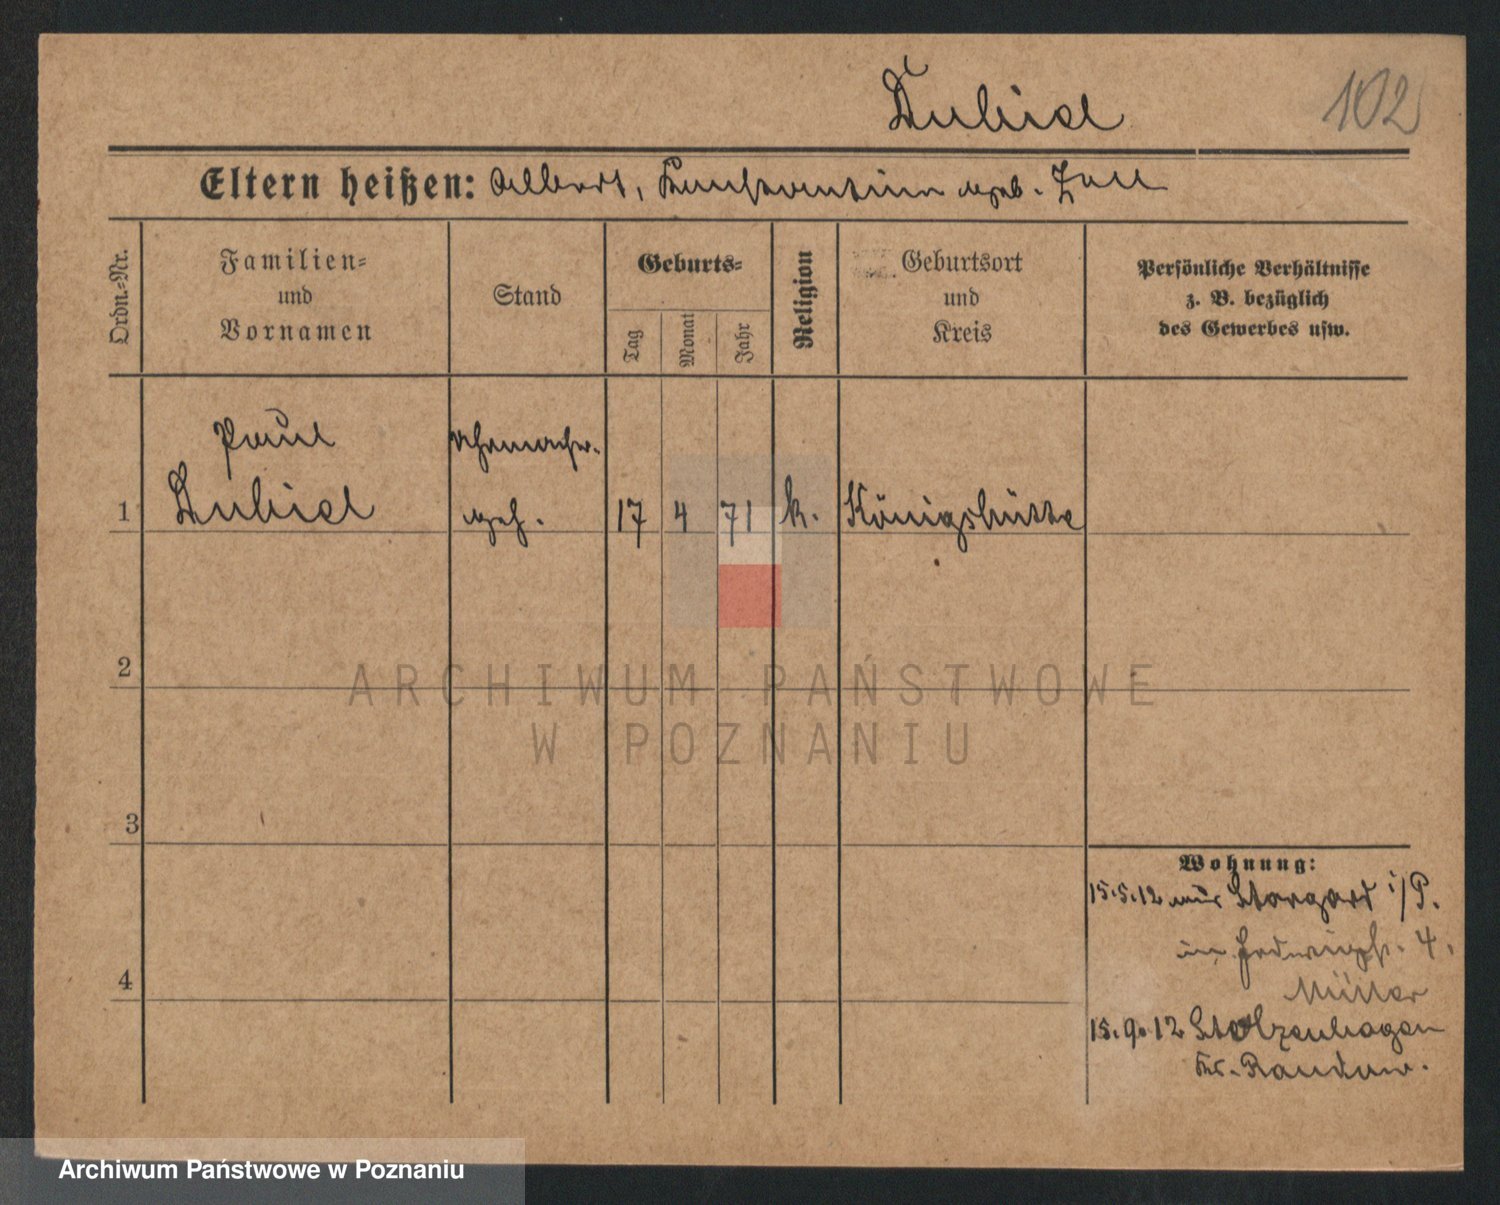 Dubiel
102
Eltern heißen: Albert, Konstantine geb. Zoll
Ordn.-Nr.
Familien-
und
Vornamen
Stand
Geburts-
Tag
Monat
Jahr
Religion
Geburtsort
und
Kreis
Persönliche Verhältnisse
z. B. bezüglich
des Gewerbes usw.
Paul
Uhrmacher-
1 Dubiel geh. 17 4 71 k. Königshütte
2
3
4
Wohnung:
15.5.12 aus Stargard i/P.
in Hedwigstr. 4.
Müller
15.9.12 Stolzenhagen
Kr. Randow.
ARCHIWUM PAŃSTWOWE
W POZNANIU
Archiwum Państwowe w Poznaniu